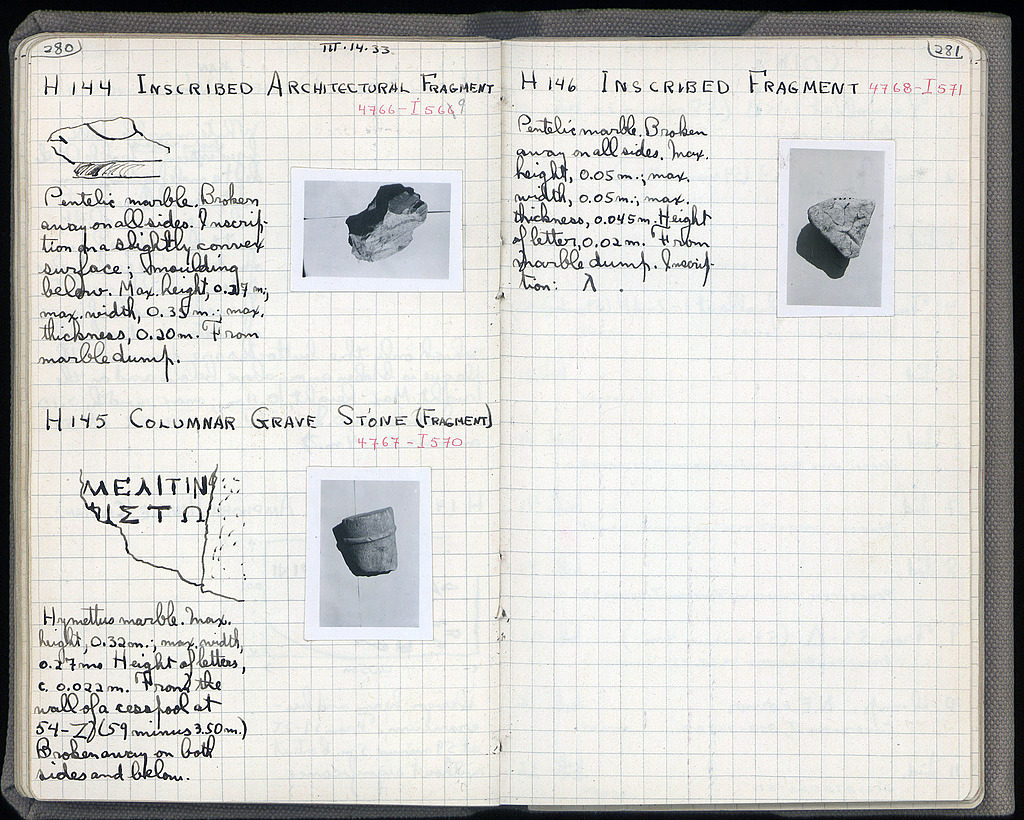 280
III·14·33
H 144 INSCRIBED ARCHITECTURAL FRAGMENT
4766-I569
Pentelic marble. Broken
away on all sides. Inscrip-
tion on a slightly convex
surface; moulding
below. Max. height, 0.27 m;
max. width, 0.35 m.; max.
thickness, 0.20 m. From
marble dump.
H 145 COLUMNAR GRAVE STONE (FRAGMENT)
4767-I570
ΜΕΛΙΤΙΝ
ΣΤΩ
Hymettus marble. Max.
height, 0.32 m.; max. width,
0.27 m. Height of letters,
c. 0.022 m. From the
wall of a cesspool at
(59 minus 3.50 m.)
Broken away on both
sides and below.
281
H 146 INSCRIBED FRAGMENT
4768-I571
Pentelic marble. Broken
away on all sides. Max.
height, 0.05 m.; max.
width, 0.05 m.; max.
thickness, 0.045 m. Height
of letter, 0.02 m. From
marble dump. Inscrip-
tion: λ .